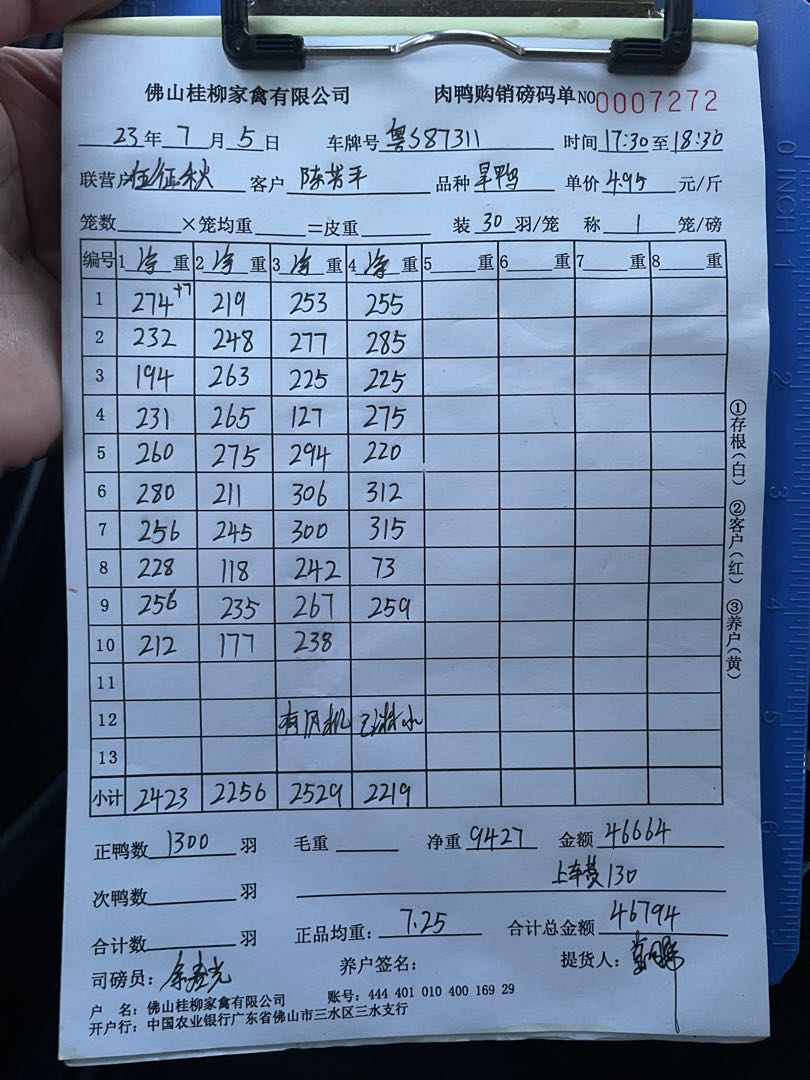 佛山桂柳家禽有限公司 肉鸭购销磅码单 NO 0007272
23年 7月 5日 车牌号 粤S87311 时间 17:30 至 18:30
联营户 伍征秋 客户 陈芳平 品种 旱鸭 单价 4.95 元/斤
笼数 ×笼均重 =皮重 装 30 羽/笼 称 1 笼/磅
编号 1 净 重 2 净 重 3 净 重 4 净 重 5 重 6 重 7 重 8 重
1 274+7 219 253 255
2 232 248 277 285
3 194 263 225 225
4 231 265 127 275
5 260 275 294 220
6 280 211 306 312
7 256 245 300 315
8 228 118 242 73
9 256 235 267 259
10 212 177 238
11
12 有风机 已淋水
13
小计 2423 2256 2529 2219
正鸭数 1300 羽 毛重 净重 9427 金额 46664
次鸭数 羽 上车费130
合计数 羽 正品均重: 7.25 合计总金额 46794
司磅员: 养户签名: 提货人:
户 名: 佛山桂柳家禽有限公司 账号: 444 401 010 400 169 29
开户行: 中国农业银行广东省佛山市三水区三水支行
①存根(白) ②客户(红) ③养户(黄)
0 INCH 1 2 3 4 5 6 7